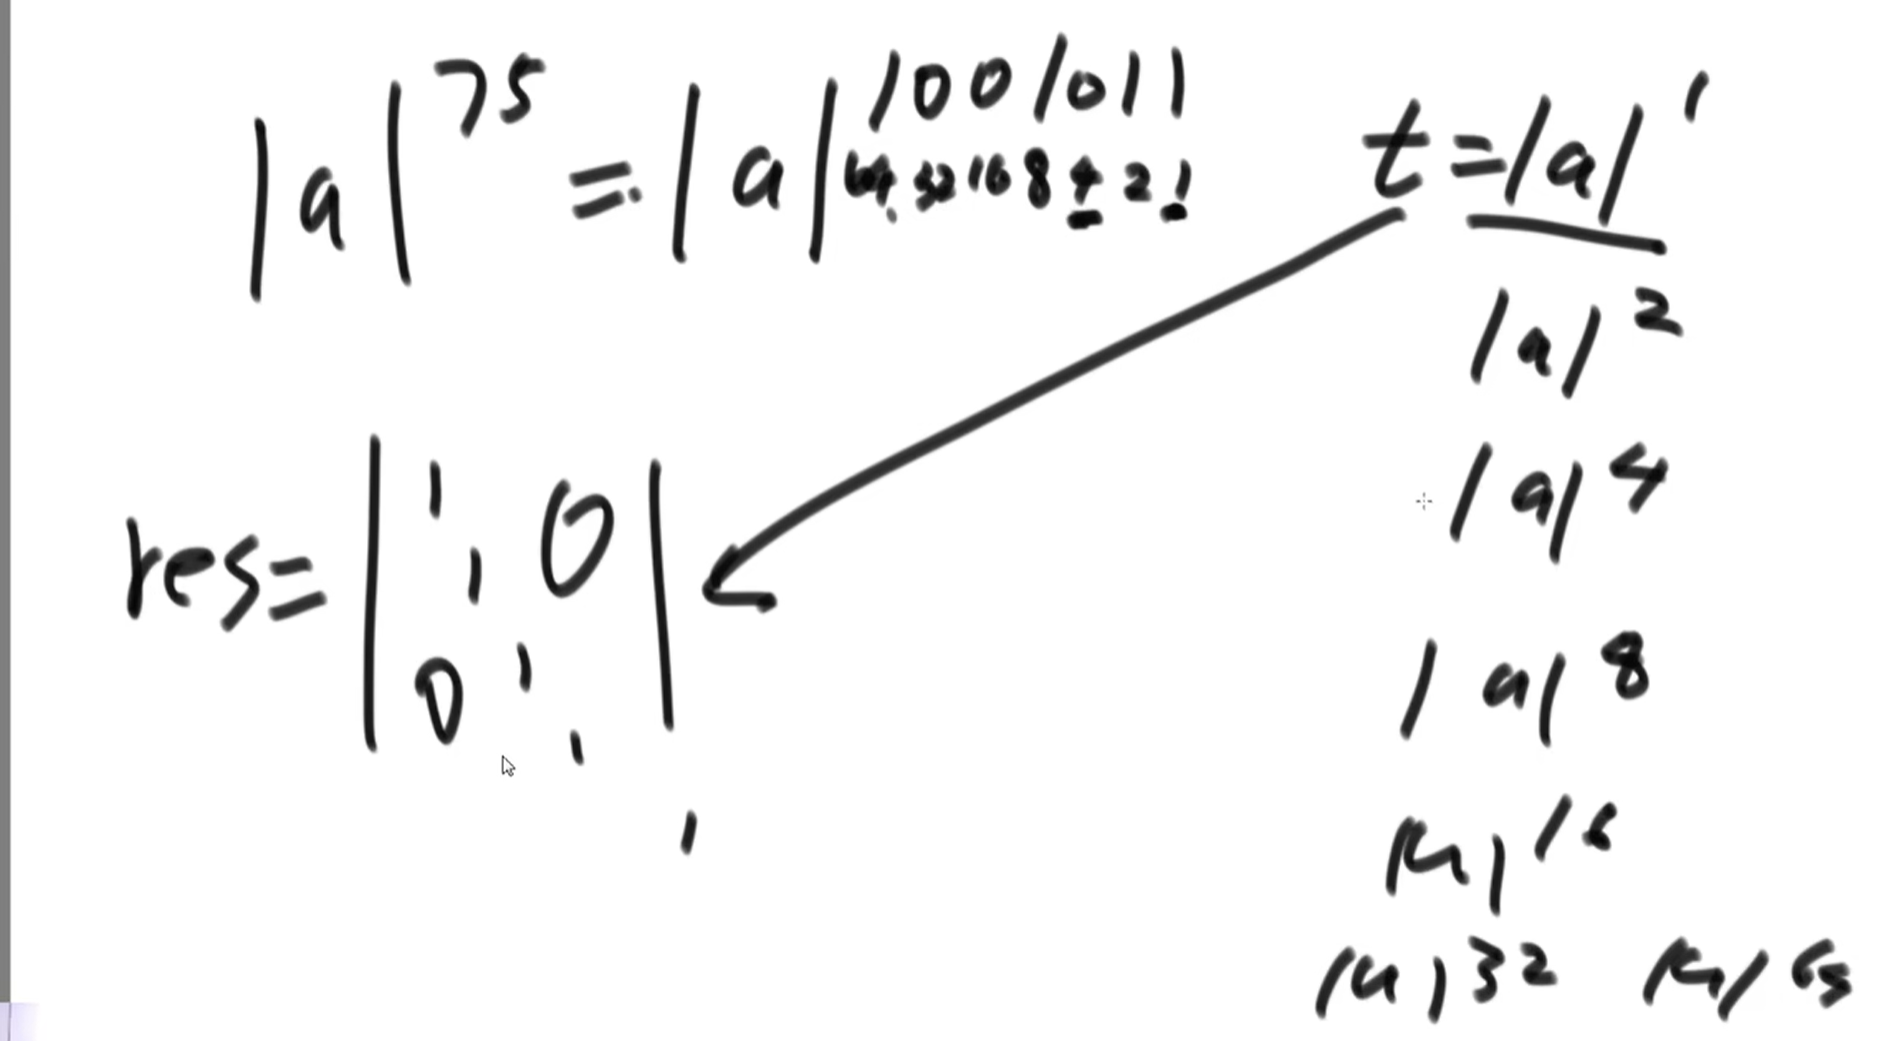 |a|^75 = |a|^1001011
64 32 16 8 4 2 1
t = |a|^1
|a|^2
|a|^4
|a|^8
|a|^16
|a|^32 |a|^
res = | 1 0 |
1
0 1
1
1